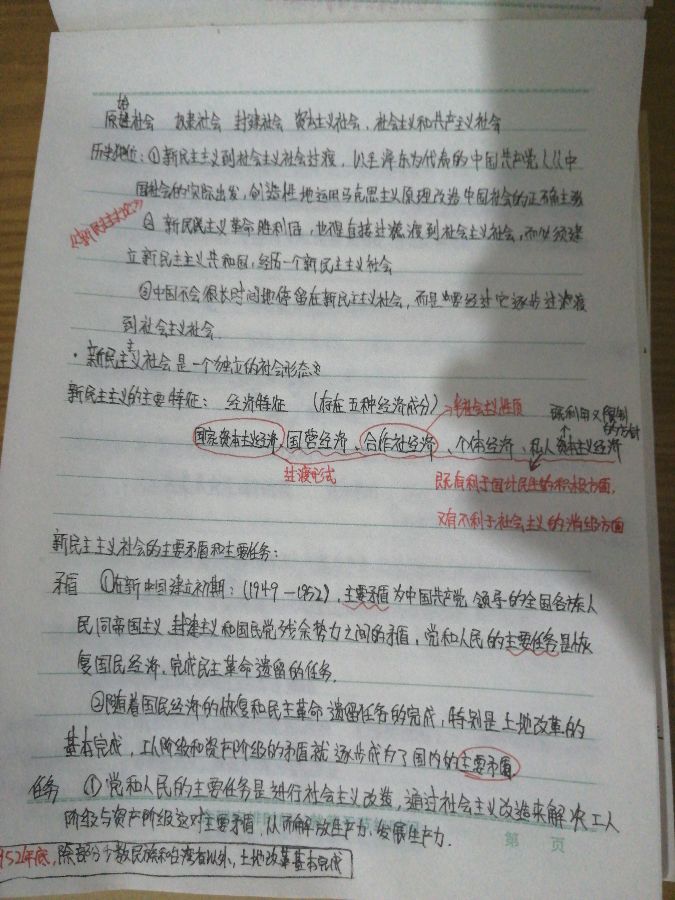 原始社会 奴隶社会 封建社会 资本主义社会、社会主义和共产主义社会
历史地位：①新民主主义到社会主义社会过渡，以毛泽东为代表的中国共产党人从中
国社会的实际出发，创造性地运用马克思主义原理改造中国社会的正确主张
②新民民主义革命胜利后，也得直接过渡到社会主义社会，而必须建
立新民主主义共和国，经历一个新民主主义社会
③中国不会很长时间地停留在新民主主义社会，而是要经过它逐步过渡
到社会主义社会.
·新民主主义社会是一个独立的社会形态
新民主主义的主要特征：经济特征 （存在五种经济成分） 半社会主义性质
采利用又限制的方针
国家资本主义经济、国营经济、合作社经济、个体经济、私人资本主义经济
过渡形式
既有利于国计民生的积极方面，
又有不利于社会主义的消极方面
新民主主义社会的主要矛盾和主要任务：
矛盾 ①在新中国建立初期：（1949—1952），主要矛盾为中国共产党领导的全国各族人
民同帝国主义、封建主义和国民党残余势力之间的矛盾，党和人民的主要任务是恢
复国民经济，完成民主革命遗留的任务.
②随着国民经济的恢复和民主革命遗留任务的完成，特别是土地改革的
基本完成，工人阶级和资产阶级的矛盾就逐步成为了国内的主要矛盾
任务 ①党和人民的主要任务是进行社会主义改造，通过社会主义改造来解决工人
阶级与资产阶级这对主要矛盾，从而解放生产力、发展生产力.
第 页
952年底，除部分少数民族和台湾省以外，土地改革基本完成